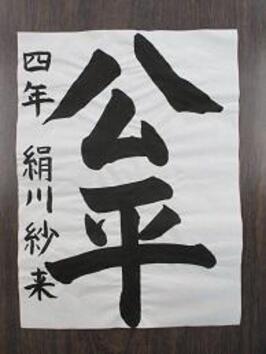 公平
四年 絹川紗来